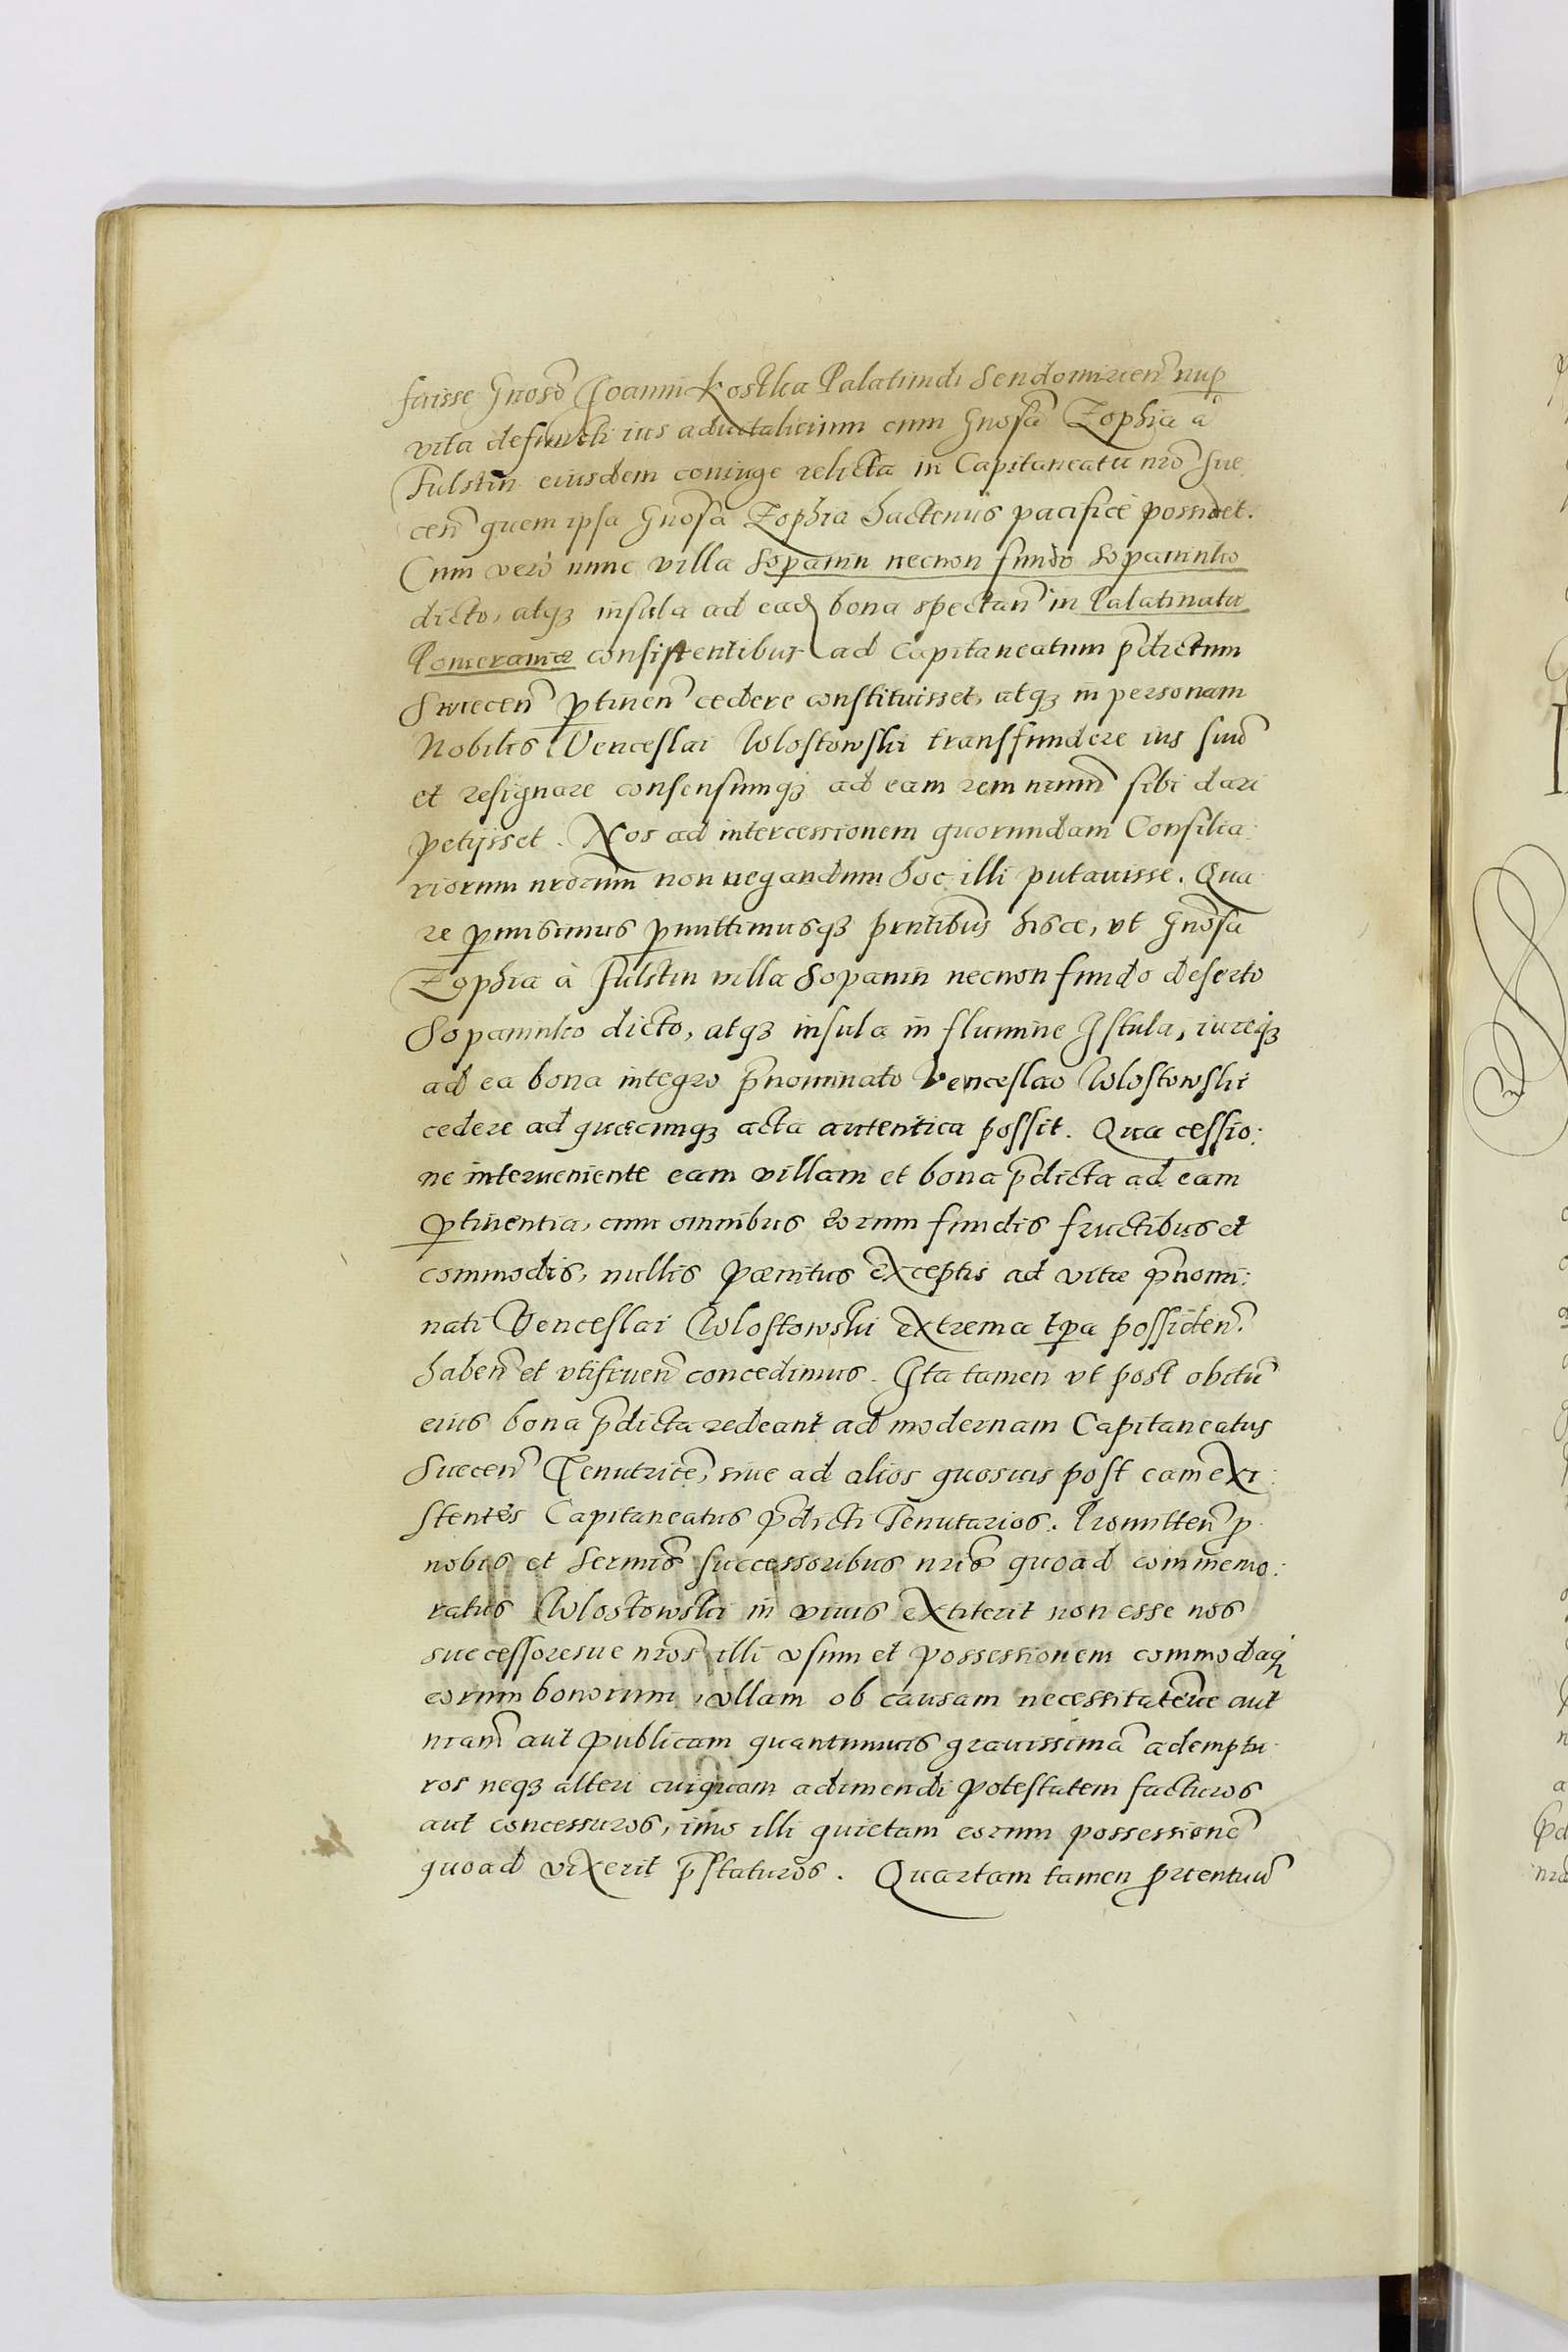 fuisse Gnoso Joanni Kostka Palatindi Sendomirien nup
vita defuncti ius aduitalicium cum Gnosa Zophia a
Fulstin eiusdem coniuge relicta in Capitaneatu nro Sue
cen quem ipsa Gnosa Zophia hactenus pacifice possidet.
Cum vero nunc villa Sopanin necnon fundo Sopaninko
dicto, atqз insula ad ead bona spectan in Palatinatu
Pomeraniæ consistentibus ad Capitaneatum pdictum
Swiecen ptinen cedere constituisset, atqз in personam
Nobilis Venceslai Wlostowski transfundere ius suu
et resignare consensumqз ad eam rem nrum sibi dari
petijsset. Nos ad intercessionem quorundam Consilia:
riorum nrorum non negandum hoc illi putauisse. Qua
re pmisimus pmittimusqз pntibus hisce, vt Gnosa
Zophia à Fulstin villa Sopanin necnon fundo deserto
Sopaninko dicto, atqз insula in flumine Istula, iureqз
ad ea bona integro pnominato Venceslao Wlostowski
cedere ad quæcunqз acta autentica possit. Qua cessio:
ne interueniente eam villam et bona pdicta ad eam
ptinentia, cum omnibus eorum fundis fructibus et
commodis, nullis pænitus exceptis ad vitæ pnomi:
nati Venceslai Wlostowski extrema tpa possiden.
haben et vtifruen concedimus. Ita tamen vt post obitu
eius bona pdicta redeant ad modernam Capitaneatus
Suecen Tenutrice, siue ad alios quosuis post eam exi:
stentes Capitaneatus pdicti Tenutarios. Promitten p
nobis et Sermis successoribus nris quoad commemo:
ratus Wlostowski in viuis extiterit non esse nos
successoresue nros illi vsum et possessionem commodaq
eorum bonorum, vllam ob causam necessitatemue aut
nram aut publicam quantumuis grauissima ademptu
ros neqз alteri cuiquam adimendi potestatem facturos
aut concessuros, imo illi quietam eorum possessione
quoad vixerit pstaturos. Quartam tamen prouentuu